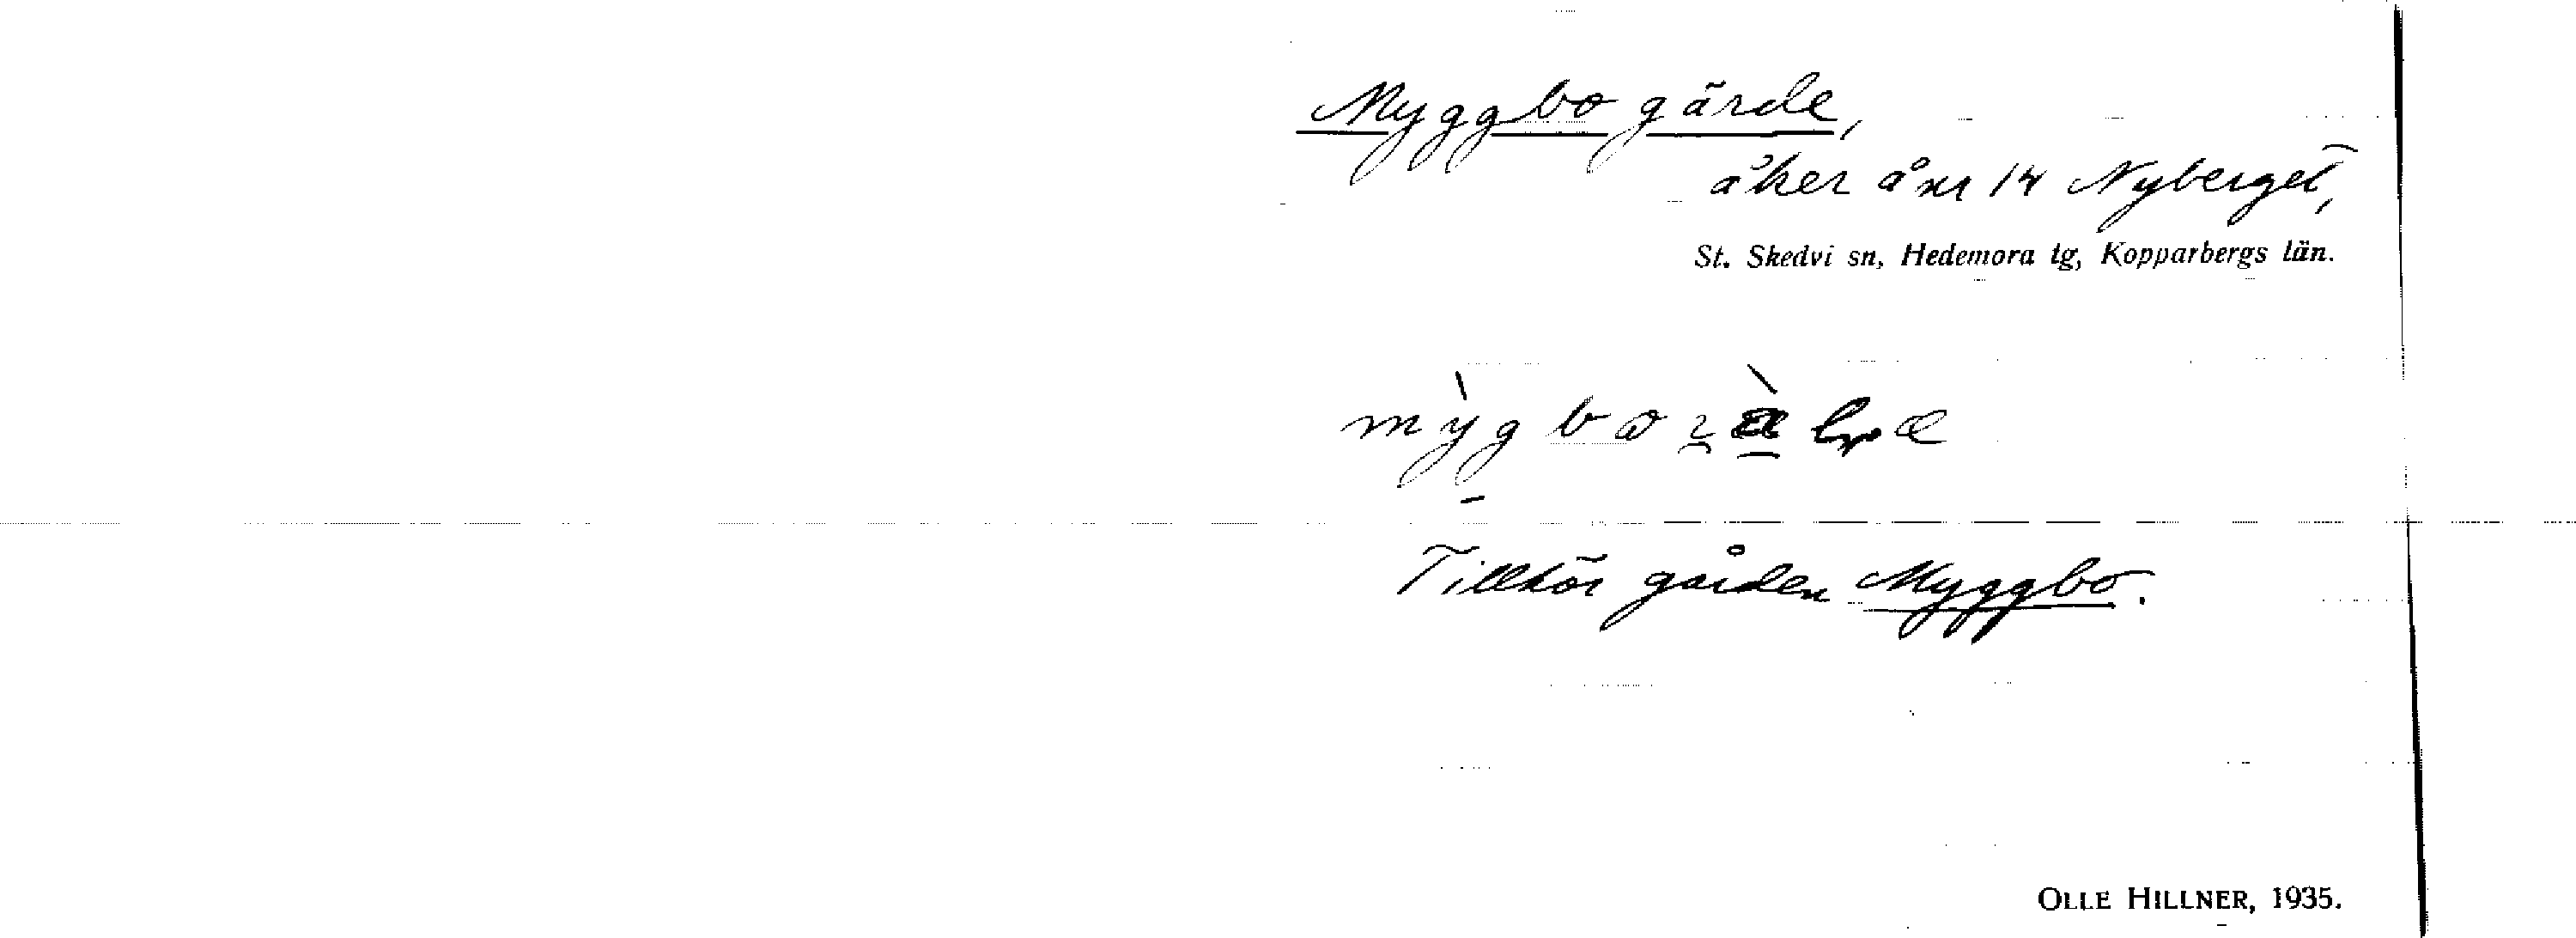 Myggbo gärde,
åker å nr 14 Nyberget,
St. Skedvi sn, Hedemora tg, Kopparbergs län.
Tillhör gården Myggbo.
OLLE HILLNER, 1935.